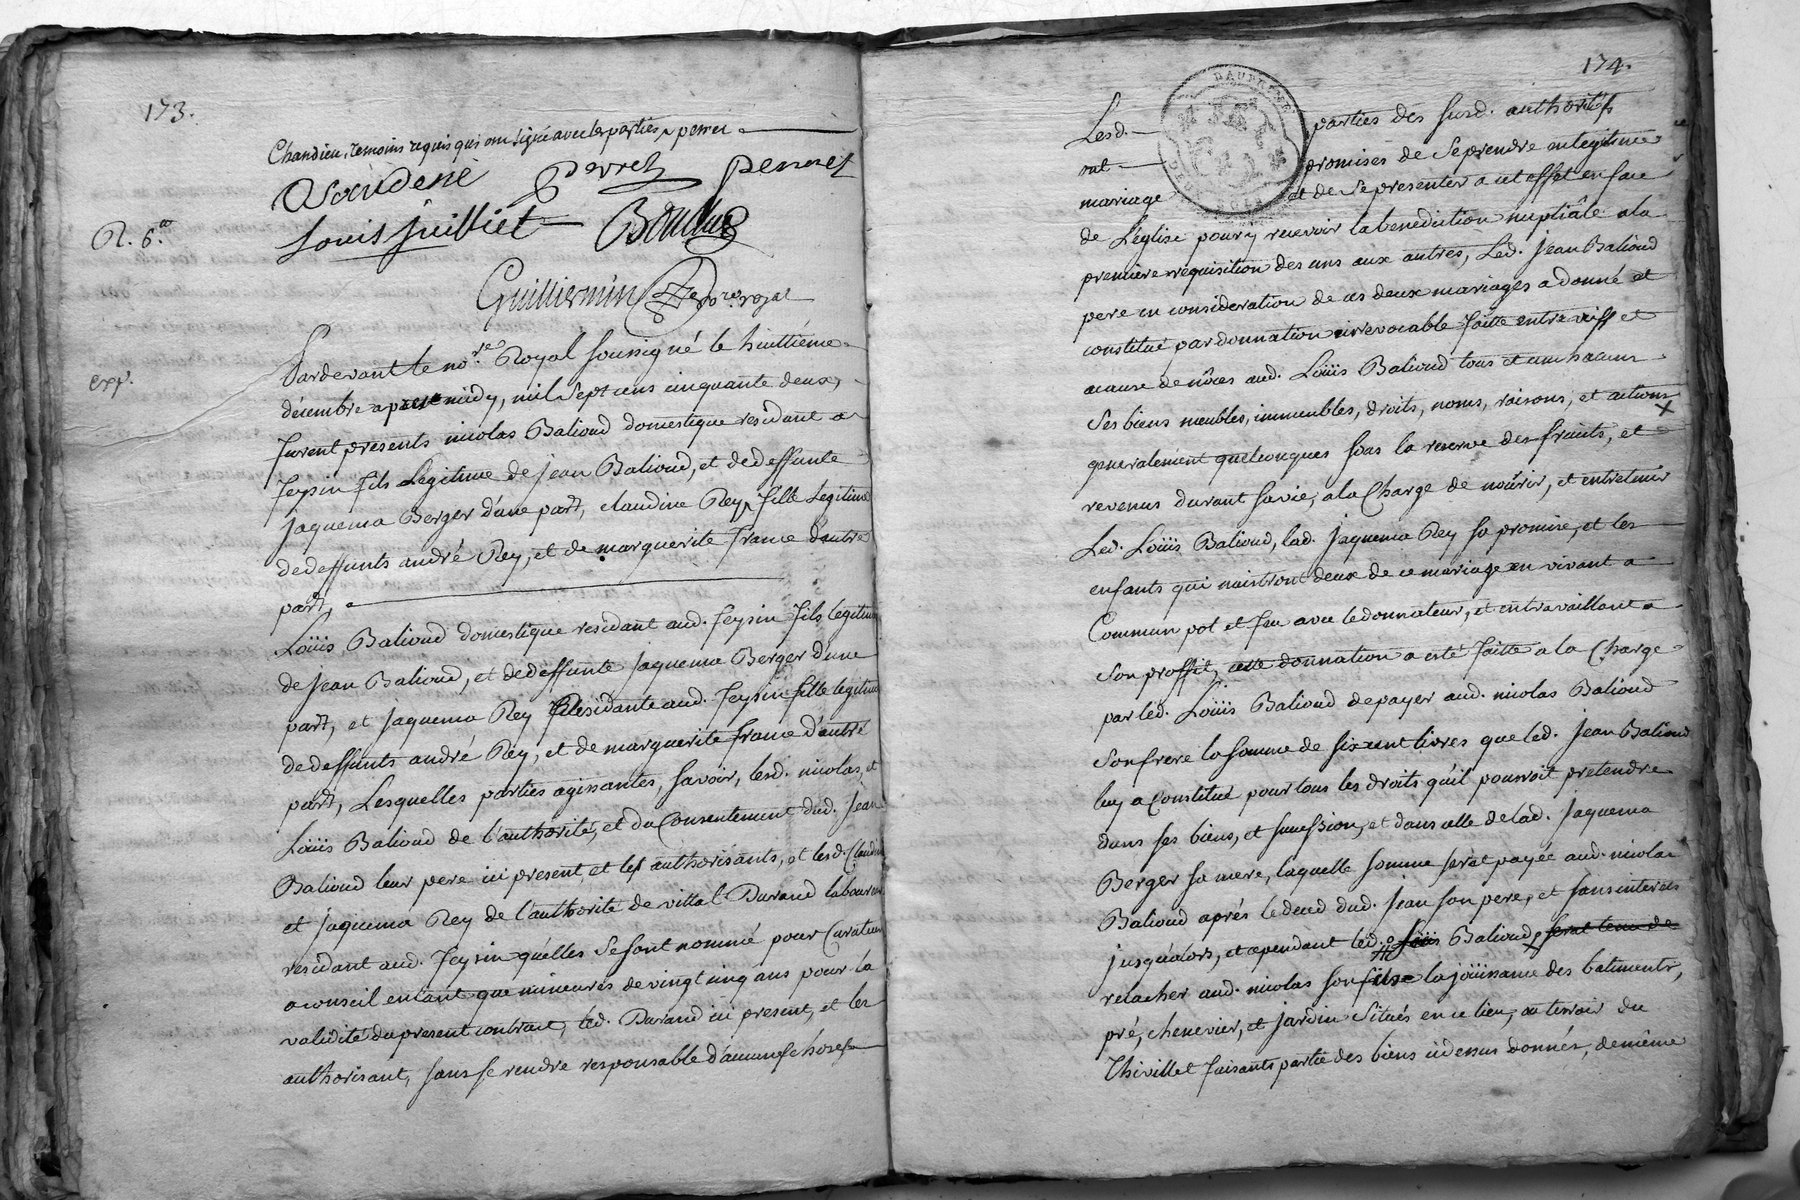 173.
Chandieu, temoins requis qui ont signé avec les parties, perret
Perret
perret
R. 6.
Louis Juilliet
Guilliermin
no.re royal
Pardevant le no.re Royal soussigné le huittieme
exp.
decembre apres midy, mil sept cens cinquante deux,
furent presents nicolas Balioud domestique residant a
feysin fils Legitime de jean Balioud, et dedeffunte
jaquema Berger d'une part, claudine Rey fille Legitime
dedeffunts andré Rey, et de marguerite france d'autre
part,
Loüis Balioud domestique residant aud. feysin fils legitime
de jean Balioud, et dedeffunte jaquema Berger d'une
part, et jaquema Rey Residante aud. feysin fille legitime
dedeffunts andré Rey, et de marguerite france d'autre
part, Lesquelles parties agissantes, savoir, lesd. nicolas, et
Loüis Balioud de l'authorité, et du Consentement dud. Jean
Balioud leur pere ici present, et les authorisants, et lesd. Claudine
et jaquema Rey de l'authorité de vittal Durand laboureur
residant aud. feysin qu'elles se sont nommé pour Curateur
a conseil entant que mineures de vingt cinq ans pour la
validité du present contract, led. Durand ici present, et les
authorisant, sans se rendre responsable d'aucunes choses
174.
DAUPHINÉ
Lesd. parties des susd. authorités
ont promises de se prendre en legitime
mariage et de se presenter a cet effet en face
de L'eglise pour y recevoir la benediction nuptiâle a la
premiere requisition des uns aux autres, Led. jean Balioud
pere en consideration de ces deux mariages a donné et
constitué par donnation irrevocable faitte entre vifs et
acause de nôces aud. Loüis Balioud tous et un chacuns
ses biens meubles, immeubles, droits, noms, raisons, et actions
generalement quelconques sous la reserve des fruits, et
revenus durant sa vie, a la Charge de nourir, et entretenir
Led. Loüis Balioud, lad. jaquema Rey sa promise, et les
enfants qui naistront deux de ce mariage en vivant a
Commun pot et feu avec le donnateur, et en travaillant a
son proffit, cette donnation a esté faitte a la Charge
par led. Loüis Balioud de payer aud. nicolas Balioud
son frere la somme de six cent livres que led. jean Balioud
luy a Constitué pour tous les droits qu'il pourroit pretendre
dans ses biens, et succession, et dans celle de lad. jaquema
Berger sa mere, laquelle somme serat payée aud. nicolas
Balioud aprés le deced dud. jean son pere, et sans interets
jusqu'alors, et cependant led. Loüis Balioud serat tenu de
relacher aud. nicolas son fils la joüissance des batiments,
pré, chenevier, et jardin situés en ce lieu, au terroir du
Thivillet faisants partie des biens cidessus donnés, de même